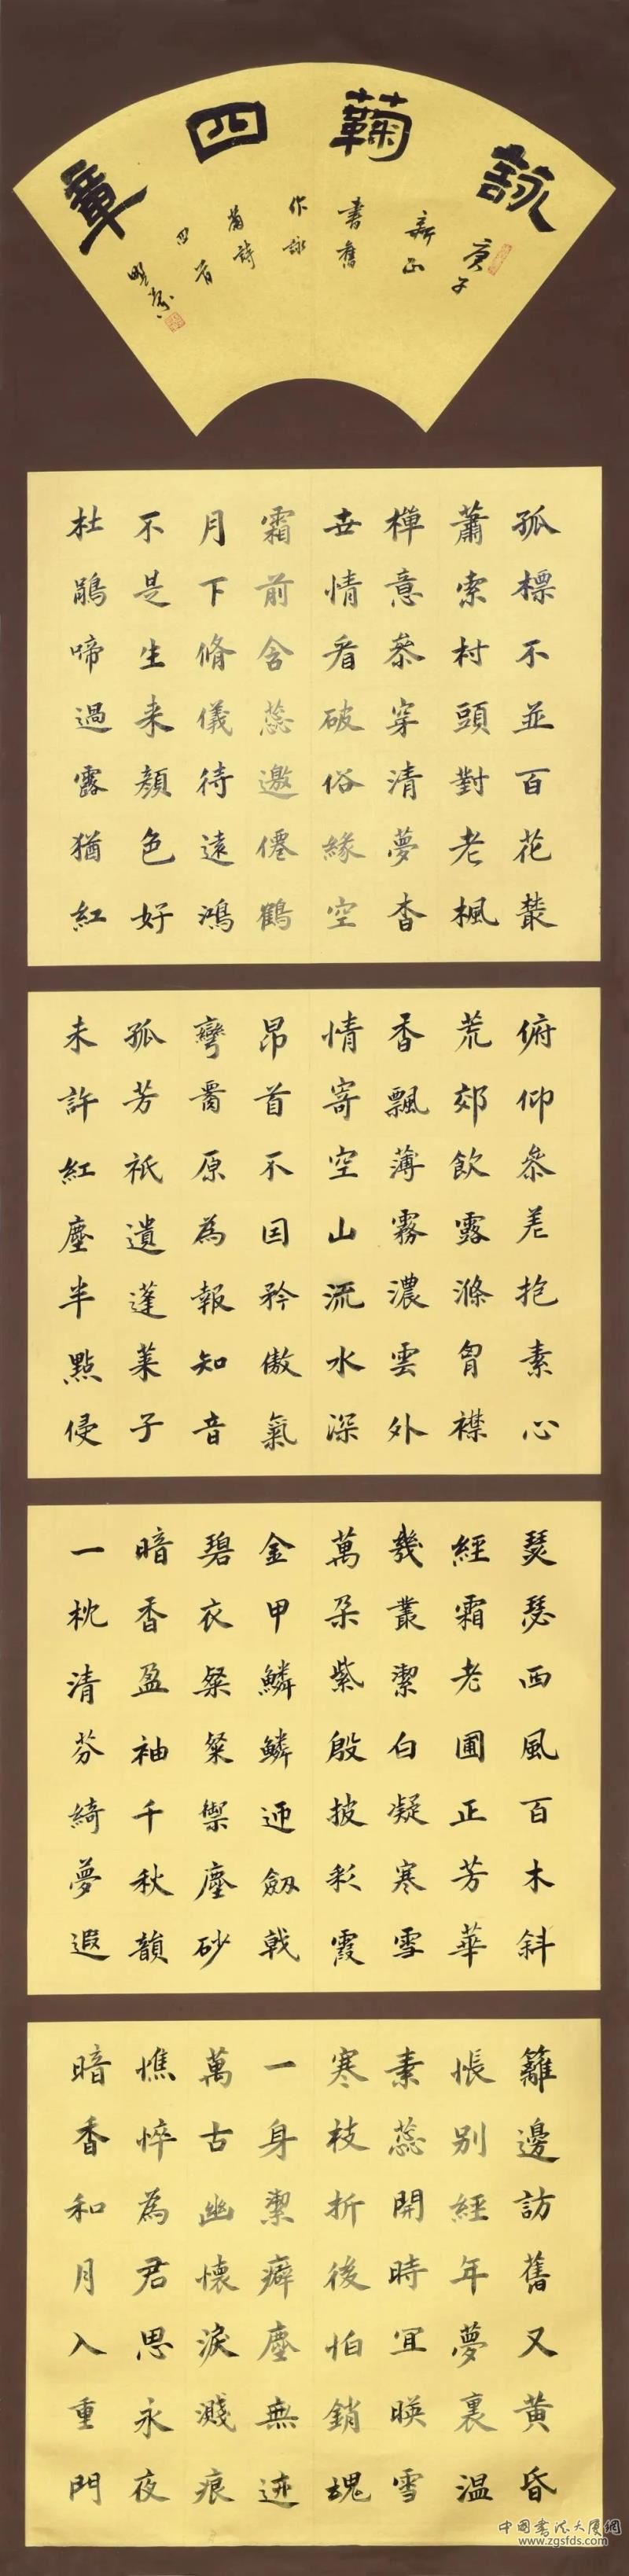 詠蘜四章
庚子
新正
書舊
作詠
菊詩
四首
孤標不並百花叢
蕭索村頭對老楓
禪意參穿清夢杳
世情看破俗緣空
霜前含蕊邀僊鶴
月下脩儀待遠鴻
不是生来顏色好
杜鵑啼過露猶紅
俯仰參差抱素心
荒郊飲露滌胷襟
香飄薄霧濃雲外
情寄空山流水深
昂首不因矜傲氣
彎原為報知音
孤芳祇遺蓬萊子
未許紅塵半點侵
瑟瑟西風百木斜
經霜老圃正芳華
幾叢潔白凝寒雪
萬朵紫殷披彩霞
金甲鱗鱗迎劔戟
碧衣粲粲禦塵砂
暗香盈袖千秋韻
一枕清芬綺夢遐
籬邊訪舊又黃昏
悵別經年夢裏温
素蕊開時宜暎雪
寒枝折後怕銷魂
一身潔癖塵無迹
萬古幽懷淚濺痕
憔悴為君思永夜
暗香和月入重門
中國書法大厦網
www.zgsfds.com